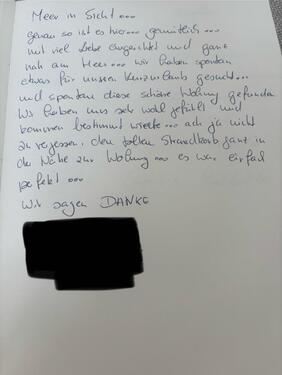 Meer in Sicht...
genau so ist es hier... gemütlich...
mit viel Liebe eingerichtet und ganz
nah am Meer... wir haben spontan
etwas für unseren Kurzurlaub gesucht...
und spontan diese schöne Wohnung gefunden
Wir haben uns sehr wohl gefühlt und
kommen bestimmt wieder... ach ja nicht
zu vergessen, den tollen Strandkorb ganz in
der Nähe zur Wohnung... es war einfach
perfekt...
Wir sagen DANKE